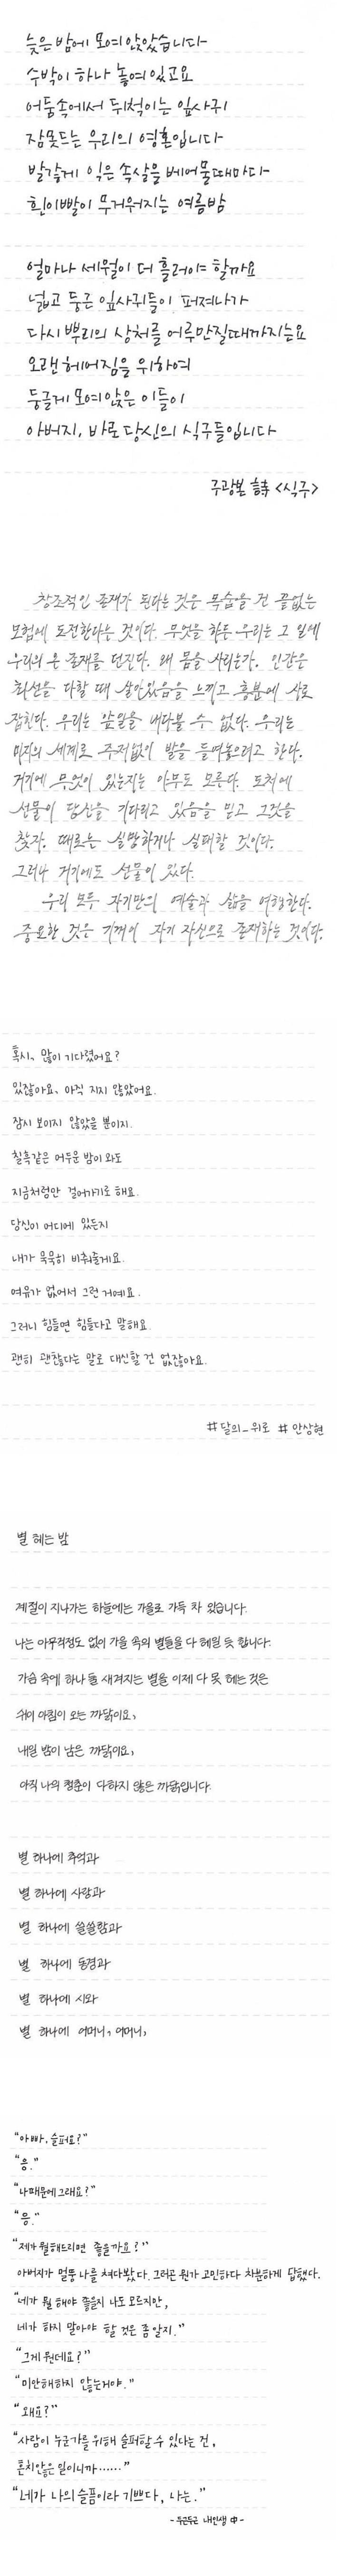 늦은 밤에 모여 앉았습니다
수박이 하나 놓여 있고요
어둠속에서 뒤척이는 잎사귀
잠못드는 우리의 영혼입니다
발갛게 익은 속살을 베어물때마다
흰이빨이 무거워지는 여름밤
얼마나 세월이 더 흘러야 할까요
넓고 둥근 잎사귀들이 퍼져나가
다시 뿌리의 상처를 어루만질때까지는요
오랜 헤어짐을 위하여
둥글게 모여 앉은 이들이
아버지, 바로 당신의 식구들입니다
구광본 詩 <식구>
창조적인 존재가 된다는 것은 목숨을 건 끝없는
모험에 도전한다는 것이다. 무엇을 하든 우리는 그 일에
우리의 온 존재를 던진다. 왜 몸을 사리는가. 인간은
최선을 다할 때 살아있음을 느끼고 흥분에 사로
잡힌다. 우리는 앞일을 내다볼 수 없다. 우리는
미지의 세계로 주저없이 발을 들여놓으려고 한다.
거기에 무엇이 있는지는 아무도 모른다. 도처에
선물이 당신을 기다리고 있음을 믿고 그것을
찾자. 때로는 실망하거나 실패할 것이다.
그러나 거기에도 선물이 있다.
우리 모두 자기만의 예술과 삶을 여행한다.
중요한 것은 기꺼이 자기 자신으로 존재하는 것이다.
혹시, 많이 기다렸어요?
있잖아요, 아직 지지 않았어요.
잠시 보이지 않았을 뿐이지.
칠흑같은 어두운 밤이 와도
지금처럼만 걸어가기로 해요.
당신이 어디에 있든지
내가 묵묵히 비춰줄게요.
여유가 없어서 그런 거예요.
그러니 힘들면 힘들다고 말해요.
괜히 괜찮다는 말로 대신할 건 없잖아요.
#달의_위로 #안상현
별 헤는 밤
계절이 지나가는 하늘에는 가을로 가득 차 있습니다.
나는 아무걱정도 없이 가을 속의 별들을 다 헤일 듯 합니다.
가슴 속에 하나 둘 새겨지는 별을 이제 다 못 헤는 것은
쉬이 아침이 오는 까닭이요,
내일 밤이 남은 까닭이요,
아직 나의 청춘이 다하지 않은 까닭입니다.
별 하나에 추억과
별 하나에 사랑과
별 하나에 쓸쓸함과
별 하나에 동경과
별 하나에 시와
별 하나에 어머니, 어머니,
"아빠, 슬퍼요?"
"응."
"나때문에 그래요?"
"응."
"제가 뭘해드리면 좋을까요?"
아버지가 멀뚱 나를 쳐다봤다. 그러곤 뭔가 고민하다 차분하게 답했다.
"네가 뭘 해야 좋을지 나도 모르지만,
네가 하지 말아야 할 것은 좀 알지."
"그게 뭔데요?"
"미안해하지 않는거야."
"왜요?"
"사람이 누군가를 위해 슬퍼할 수 있다는 건,
흔치않은 일이니까……"
"네가 나의 슬픔이라 기쁘다, 나는."
-두근두근 내인생 中-